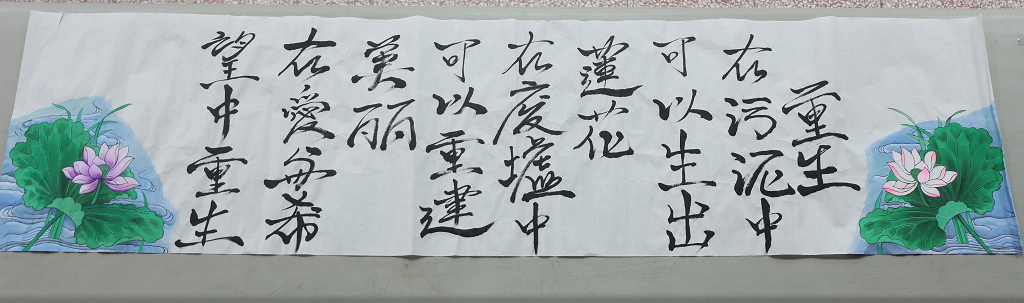 重生
在污泥中
可以生出
蓮花
在废墟中
可以重建
美丽
在愛与希
望中重生